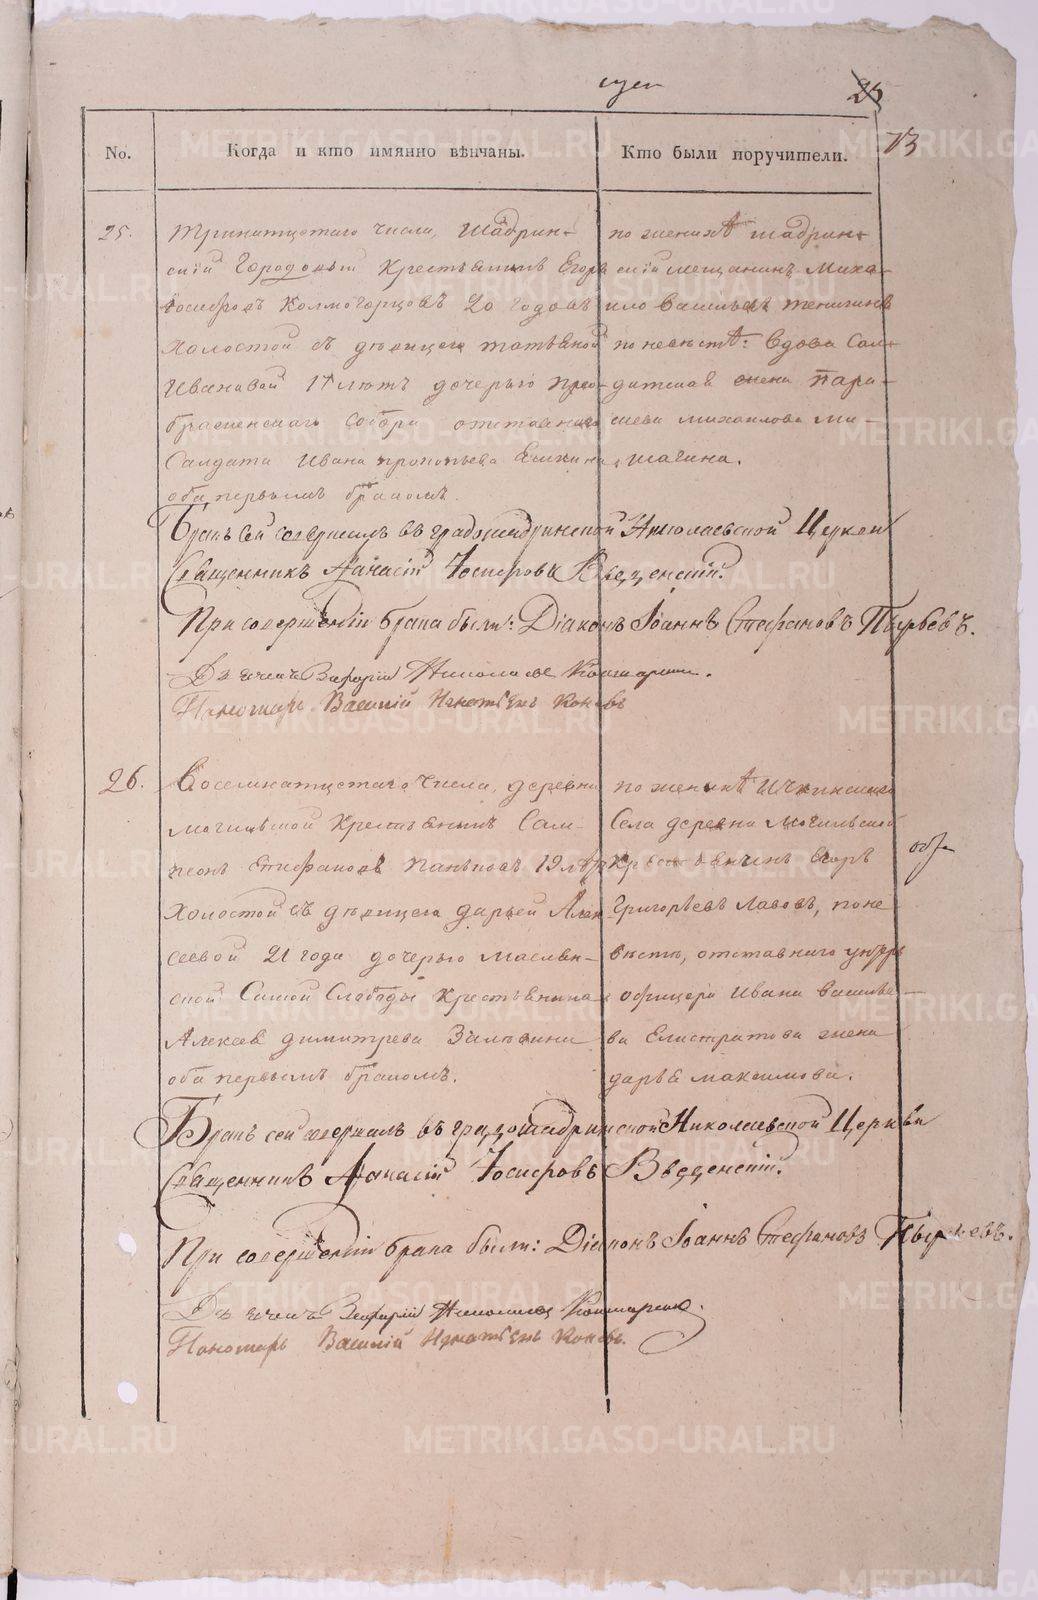 25
73
No.
Когда и кто имянно вѣнчаны.
Кто были поручители.
25.
тринатцетаго числа, Шадрин-
ской Городовыи Крестьянинъ Егоръ
Иосифовъ Колмогорцовъ 20 годовъ
Холостой съ дѣвицею татьяной
Ивановой 17 лѣтъ дочерью прео-
браженскаго Собора отставнаго
Салдата Ивана прокопьева
оба первымъ бракомъ.
по женихѣ шадрин-
скій мещанинъ Миха-
ило Васильевъ
по невѣстѣ: вдова Сал-
датская жена Пара-
скева михаилова ми-
шагина.
Бракъ сей совершалъ въ градошадринской Николаевской Церкви
Священникъ Афанасій Іосифовъ Введенскій.
При совершеніи брака были: Діаконъ Іоаннъ Стефановъ Пырьевъ.
Дьячекъ Николаевъ
Пономарь Василій Игнатьевъ Коневъ
26.
Восемнатцетаго числа, деревни
могильской Крестьянинъ Сам-
псонъ Епифановъ Паньковъ 19 лѣтъ
Холостой съ дѣвицею дарьей Алек-
сеевой 21 года дочерью Маслен-
ской Самой Слободы Крестьянина
Алексея димитрева
оба первымъ бракомъ.
по женихѣ Ичкинскаго
Села деревни Могильской
Крестьянинъ Егоръ
Григорьевъ Лавовъ, по не-
вѣстѣ, отставнаго унтеръ
офицера Ивана василье-
ва Елистратова жена
дарья максимова.
Бракъ сей совершалъ въ градошадринской Николаевской Церкви
Священникъ Афанасій Іосифовъ Введенскій.
При совершеніи брака были: Діаконъ Іоаннъ Стефановъ Пырьевъ.
Дьячекъ Николаевъ
Пономарь Василій Игнатьевъ Коневъ.
METRIKI.GASO-URAL.RU